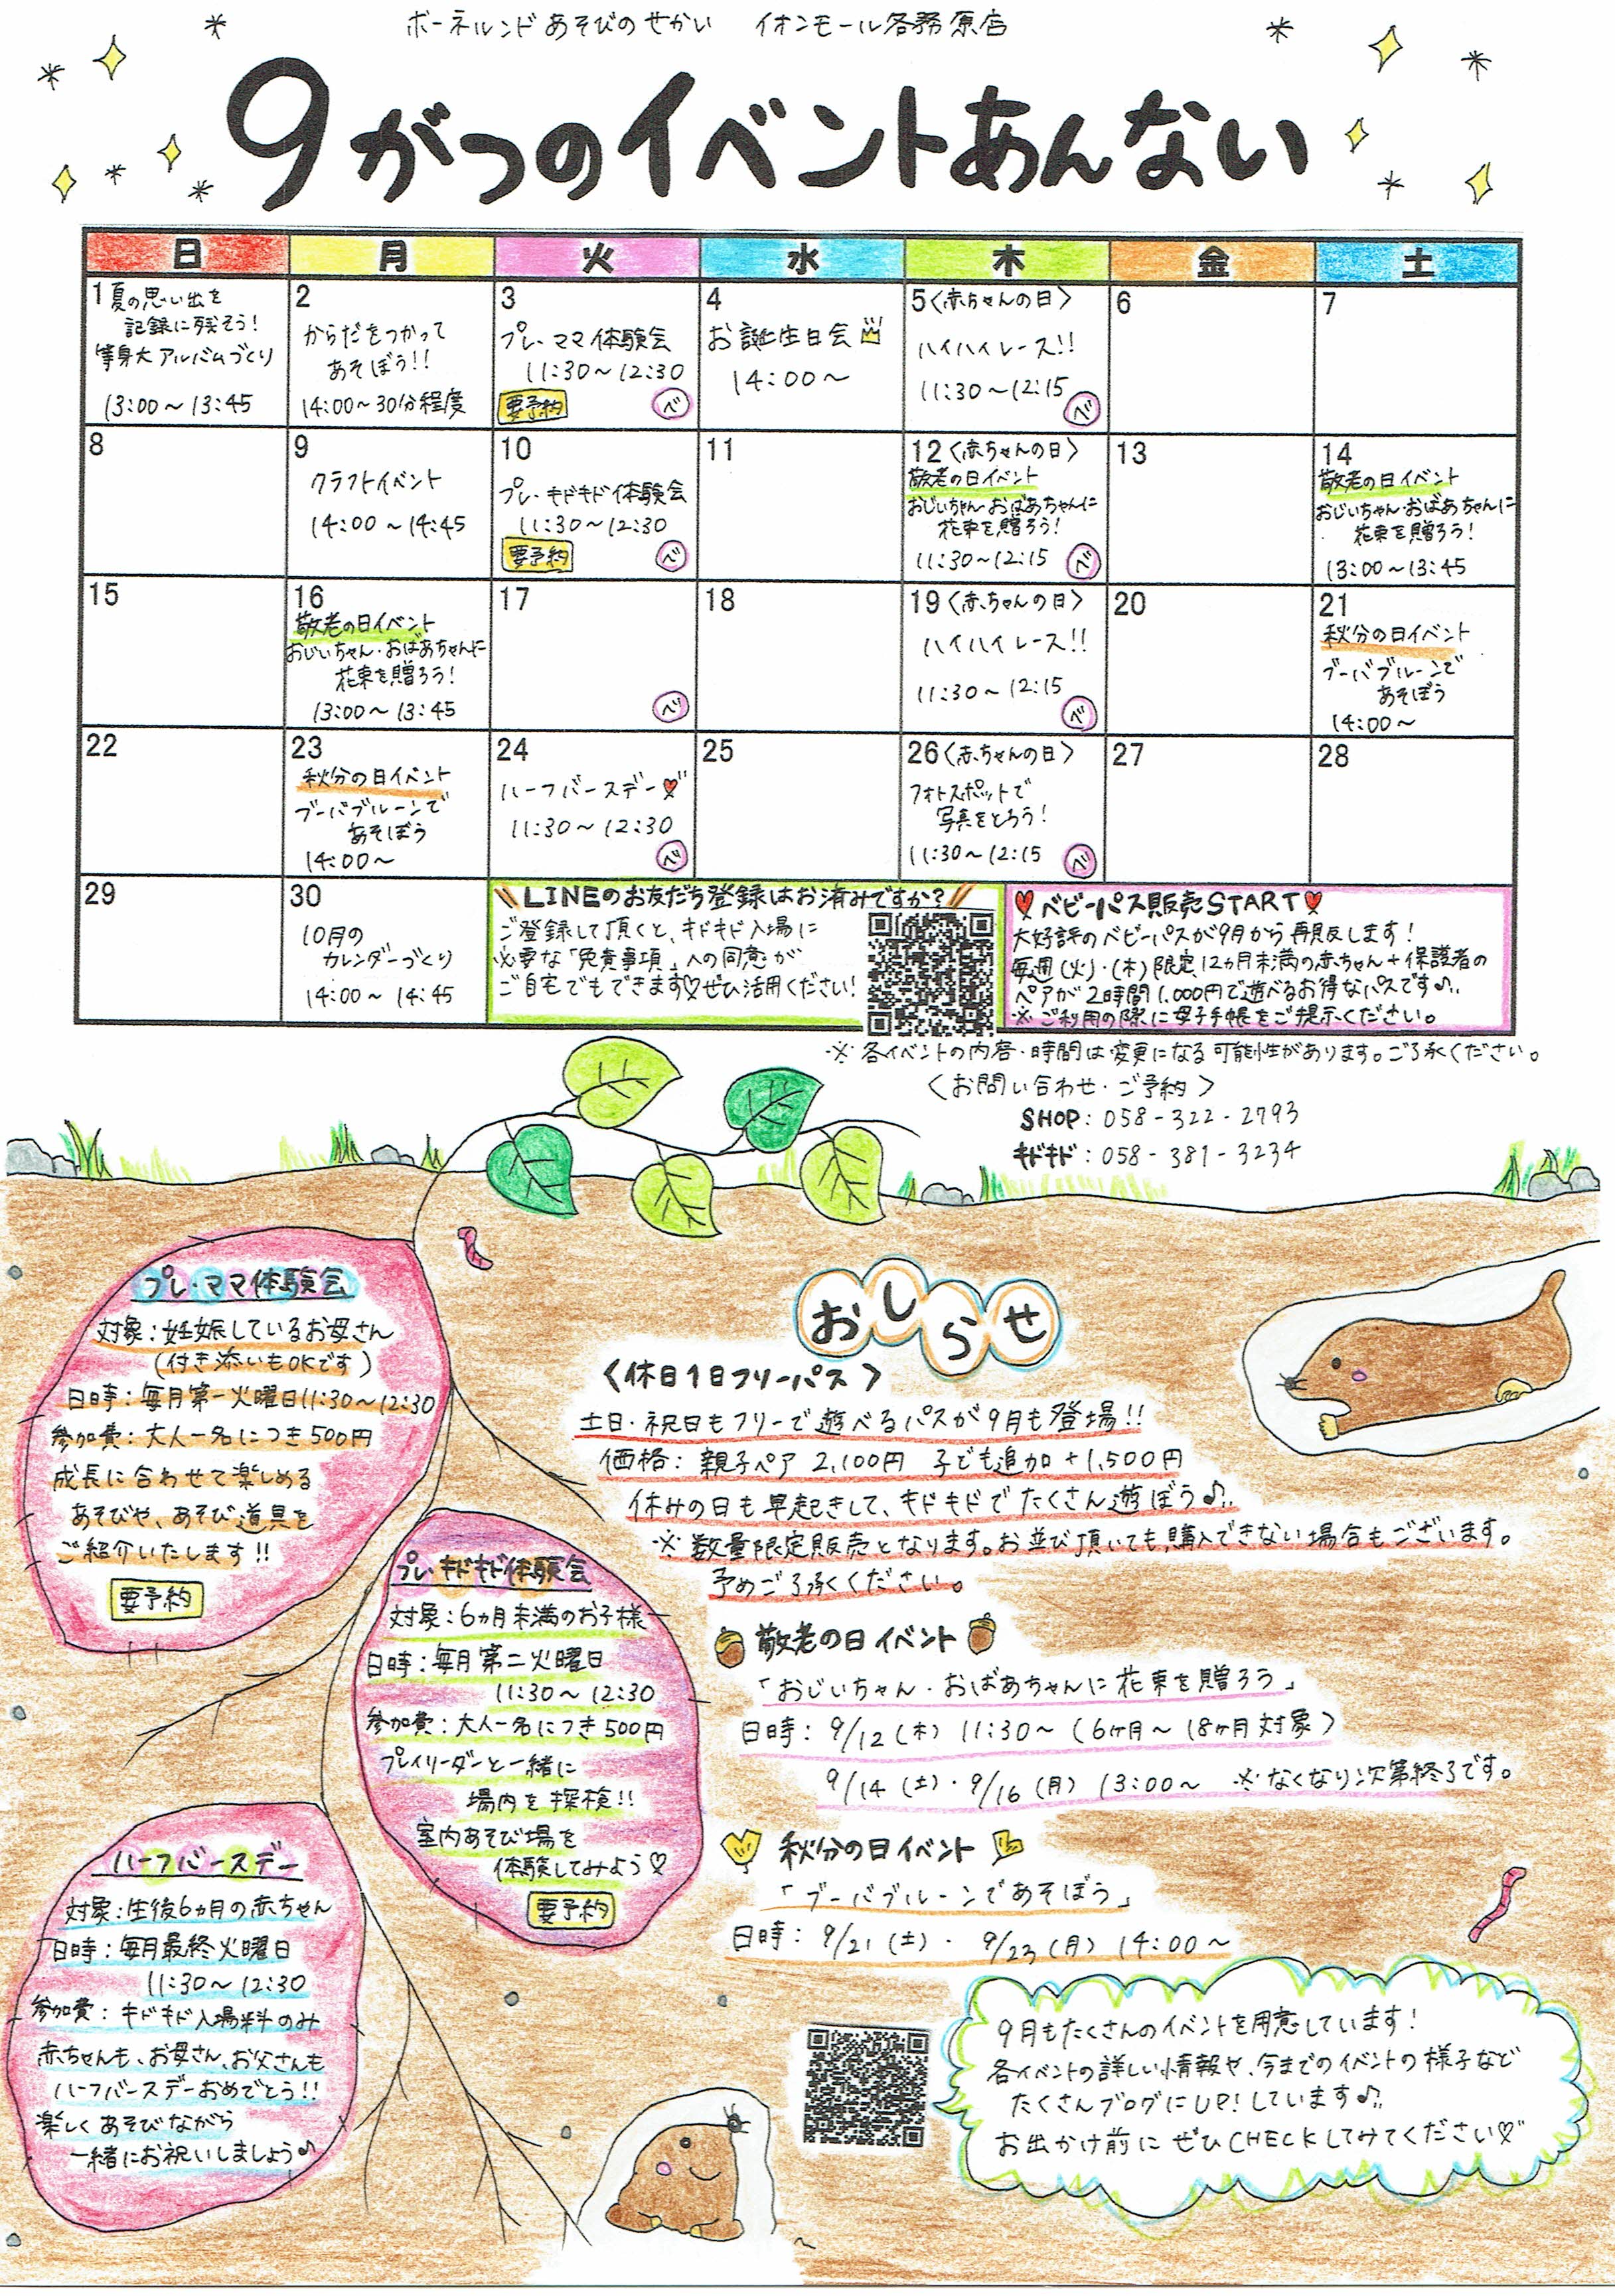 ボーネルンドあそびのせかい イオンモール各務原店
9がつのイベントあんない
日 月 火 水 木 金 土
1 夏の思い出を
記録に残そう!
等身大アルバムづくり
13:00〜13:45
2
からだをつかって
あそぼう!!
14:00〜30分程度
3
プレ・ママ体験会
11:30〜12:30
要予約 べ
4
お誕生日会
14:00〜
5〈赤ちゃんの日〉
ハイハイレース!!
11:30〜12:15
べ
6
7
8
9
クラフトイベント
14:00〜14:45
10
プレ・キドキド体験会
11:30〜12:30
要予約 べ
11
12〈赤ちゃんの日〉
敬老の日イベント
おじいちゃん・おばあちゃんに
花束を贈ろう!
11:30〜12:15 べ
13
14
敬老の日イベント
おじいちゃん・おばあちゃんに
花束を贈ろう!
13:00〜13:45
15
16
敬老の日イベント
おじいちゃん・おばあちゃんに
花束を贈ろう!
13:00〜13:45
17
べ
18
19〈赤ちゃんの日〉
ハイハイレース!!
11:30〜12:15
べ
20
21
秋分の日イベント
ブーバブルーンで
あそぼう
14:00〜
22
23
秋分の日イベント
ブーバブルーンで
あそぼう
14:00〜
24
ハーフバースデー
11:30〜12:30
べ
25
26〈赤ちゃんの日〉
フォトスポットで
写真をとろう!
11:30〜12:15 べ
27
28
29
30
10月の
カレンダーづくり
14:00〜14:45
LINEのお友だち登録はお済みですか?
ご登録して頂くと、キドキド入場に
必要な「免責事項」への同意が
ご自宅でもできます♡ぜひ活用ください!
ベビーパス販売START
大好評のベビーパスが9月から再販します!
毎週(火)・(木)限定、12ヵ月未満の赤ちゃん+保護者の
ペアが2時間1,000円で遊べるお得なパスです♪
※ご利用の際に母子手帳をご提示ください。
※各イベントの内容・時間は変更になる可能性があります。ご了承ください。
〈お問い合わせ・ご予約〉
SHOP:058-322-2793
キドキド:058-381-3234
プレ・ママ体験会
対象:妊娠しているお母さん
(付き添いもOKです)
日時:毎月第一火曜日11:30〜12:30
参加費:大人一名につき500円
成長に合わせて楽しめる
あそびや、あそび道具を
ご紹介いたします!!
要予約
プレ・キドキド体験会
対象:6ヵ月未満のお子様
日時:毎月第二火曜日
11:30〜12:30
参加費:大人一名につき500円
プレイリーダーと一緒に
場内を探検!!
室内あそび場を
体験してみよう♡
要予約
ハーフバースデー
対象:生後6ヵ月の赤ちゃん
日時:毎月最終火曜日
11:30〜12:30
参加費:キドキド入場料のみ
赤ちゃんも、お母さん、お父さんも
ハーフバースデーおめでとう!!
楽しくあそびながら
一緒にお祝いしましょう♪
おしらせ
〈休日1日フリーパス〉
土日・祝日もフリーで遊べるパスが9月も登場!!
価格:親子ペア 2,100円 子ども追加+1,500円
休みの日も早起きして、キドキドでたくさん遊ぼう♪
※数量限定販売となります。お並び頂いても購入できない場合もございます。
予めご了承ください。
敬老の日イベント
「おじいちゃん・おばあちゃんに花束を贈ろう」
日時:9/12(木) 11:30〜(6ヶ月〜18ヶ月対象)
9/14(土)・9/16(月) 13:00〜 ※なくなり次第終了です。
秋分の日イベント
「ブーバブルーンであそぼう」
日時:9/21(土)・9/23(月) 14:00〜
9月もたくさんのイベントを用意しています!
各イベントの詳しい情報や、今までのイベントの様子など
たくさんブログにUP!しています♪
お出かけ前にぜひCHECKしてみてください♡